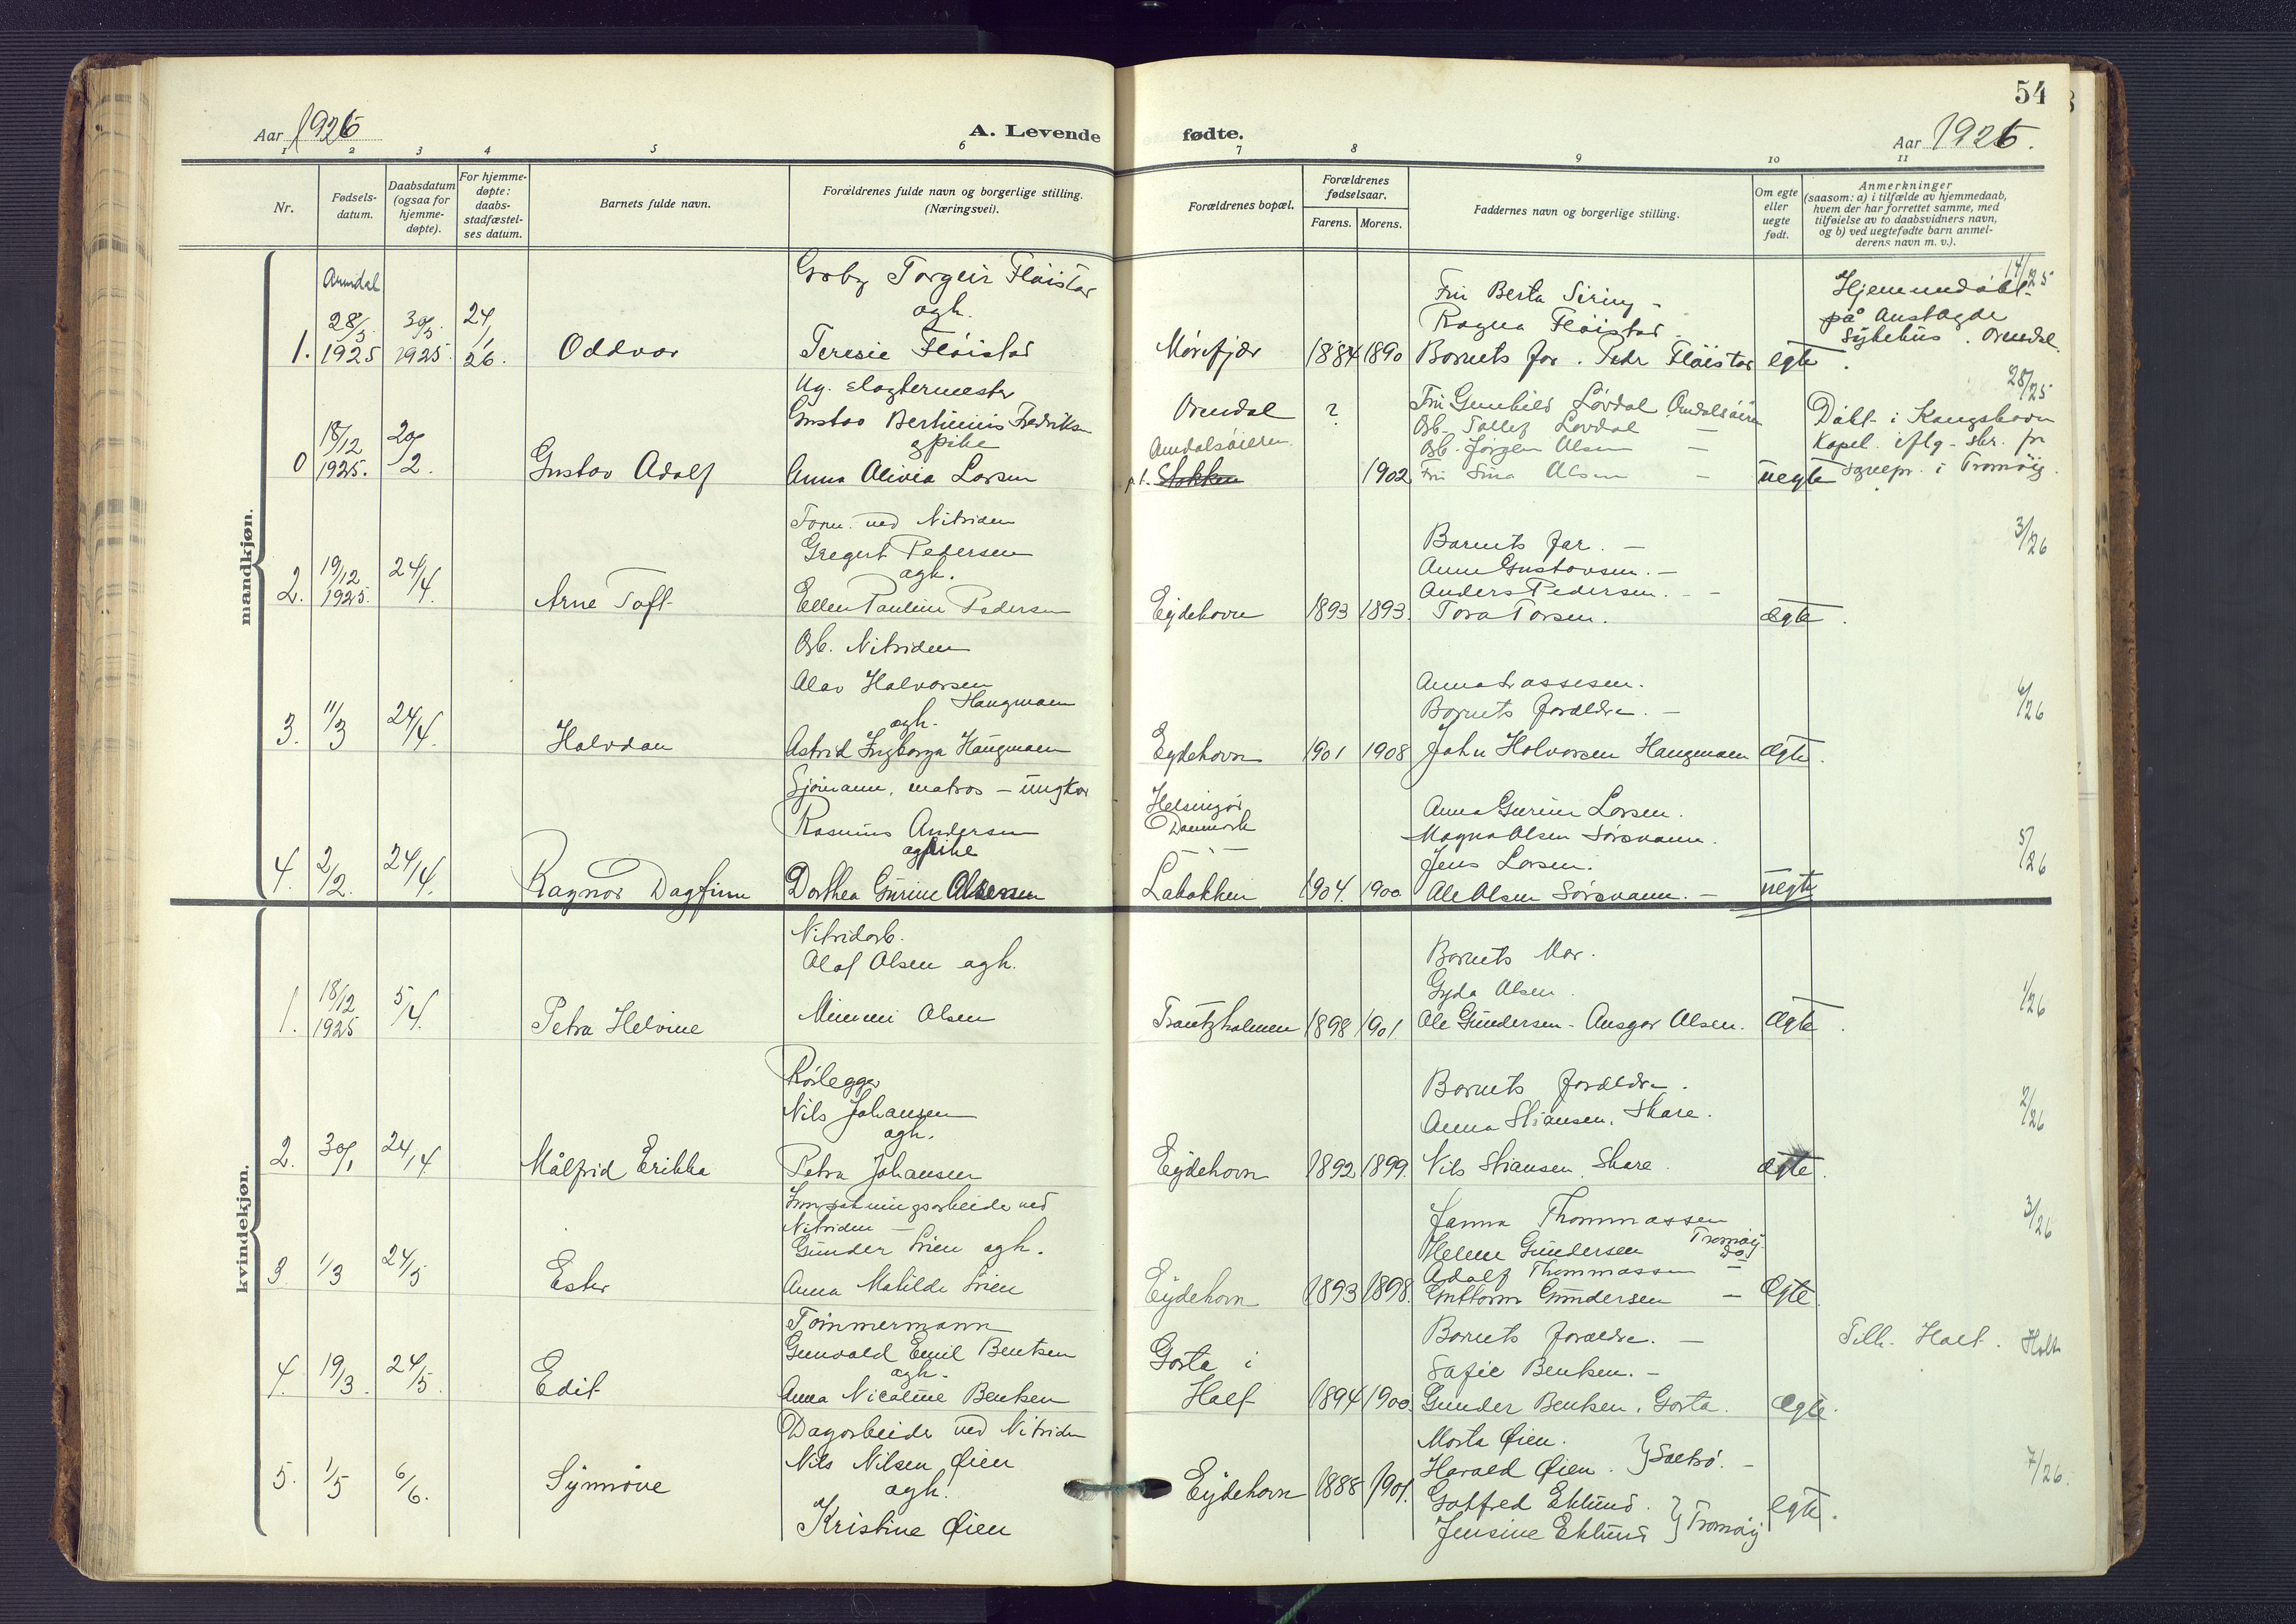 54
Aar 1926
A. Levende
fødte.
Aar 1926.
1 2 3 4 5 6 7 8 9 10 11
Nr.
Fødsels-
datum.
Daabsdatum
(ogsaa for
hjemme-
døpte).
For hjemme-
døpte:
daabs-
stadfæstel-
ses datum.
Barnets fulde navn.
Forældrenes fulde navn og borgerlige stilling.
(Næringsvei).
Forældrenes bopæl.
Forældrenes
fødselsaar.
Farens.
Morens.
Faddernes navn og borgerlige stilling.
Om egte
eller
uegte
født.
Anmerkninger
(saasom: a) i tilfælde av hjemmedaab,
hvem der har forrettet samme, med
tilføielse av to daabsvidners navn,
og b) ved uegtefødte barn anmel-
derens navn m. v.).
mandkjøn.
Arendal
1. 28/3 1925 30/3 1925. 24/1 26. Oddvar
Torgeir Fløistad
agh.
Teresie Fløistad
Mørefjær 1884 1890
Fru Berta
Ragna Fløistad
Barnets far. Peder Fløistad
egte.
14/25
Hjemmedøbt
på Aust Agde
Sykehus. Arendal.
0 18/12 1925. 20/2. Gustav Adolf
Ug. slagtermester
Gustav Bertinius Fredriksen
og pike
Anna Alivia Larsen
Arendal ?
Arendalsøieren
p.t. Stokken 1902
Fru Gunhild Løvdal Arendalsøieren
Arb. Tallef Løvdal —
Arb. Jørgen Alsen —
Fru Sina Alsen —
uegte
28/25
Døbt i Kongshavn
Kapel iflg. skr. fra
Sognepr. i Tromøy.
2. 19/12 1925. 24/4. Arne Toft
Form. ved Nitriden
Gregert Pedersen
agh.
Ellen Pauline Pedersen
Eydehavn 1893 1893.
Barnets far. —
Anne Gustavsen. —
Anders Pedersen. —
Tora Torsen.
ægte.
3/26
3. 11/3 24/4. Halvdan
Arb. Nitriden
Alav Halvorsen
Haugmoen
agh.
Astrid Ingborga Haugmoen
Eydehavn 1901 1908
Anna Lassesen.
Barnets forældre. —
John Halvorsen Haugmoen
ægte.
4/26
4. 2/2. 24/4. Ragnar Dagfinn
Sjømann, matros — ungkar
Rasmus Andersen
og pike
Dorthea Gurine Olsen
Helsingør
Danmark
Labakken 1904. 1900
Anna Gurine Larsen.
Magna Olsen Sørsvann.
Jens Larsen.
Ole Olsen Sørsvann. —
uegte
5/26
kvindekjøn.
1. 18/12 1925 5/4. Petra Helvine
Nitridarb.
Olaf Olsen agh.
Mimmi Olsen
Frantzholmen 1898 1901.
Barnets Mor.
Gyda Olsen.
Ole Gundersen - Ansgar Olsen.
ægte.
1/26
2. 30/1 24/4 Målfrid Erikka
Rørlegger
Nils Johansen
agh.
Petra Johansen
Eydehavn 1892 1899.
Barnets forældre.
Anna Stiansen, Skare.
Nils Stiansen Skare.
ægte.
2/26
3 1/3 24/5 Ester
ved
Nitriden —
Gunder agh.
Anna Matilde
Eydehavn 1893 1898.
Janna Thommassen
Helene Gundersen Tromøy
Adolf Thommassen do
Guttorm Gundersen —
Egte.
3/26
4. 19/3. 24/5. Edit
Tømmermann
Gunvald Emil Bentsen
agh.
Anna Nicoline Bentsen
Goста i
Holt 1894 1900.
Barnets forældre. —
Sofie Bentsen. —
Gunder Bentsen, Gosta.
Ægte.
Tilh. Holt. Holt
5. 1/5 6/6. Synnøve
Dagarbeider ved Nitriden
Nils Nilsen Øien
agh.
Kristine Øien
Eydehavn 1888 1901.
Marta Øien.
Harald Øien. } Saltrø. —
Gotfred Eklund.
Jensine Eklund } Tromøy
egte.
7/26.